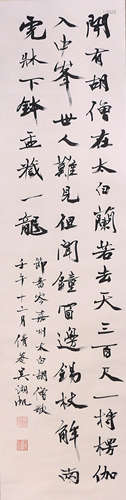 聞有胡僧在太白蘭若去天三百尺一持楞伽
入中峯世人難見但聞鐘窗邊錫杖解兩
虎牀下鉢盂藏一龍
節書岑嘉州太白胡僧歌
壬午十二月倩菴吳湖帆